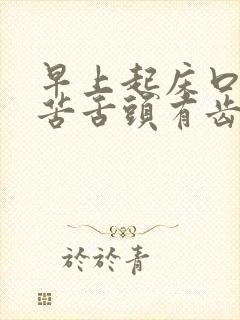 早上起床口
苦舌頭有齿
於於青